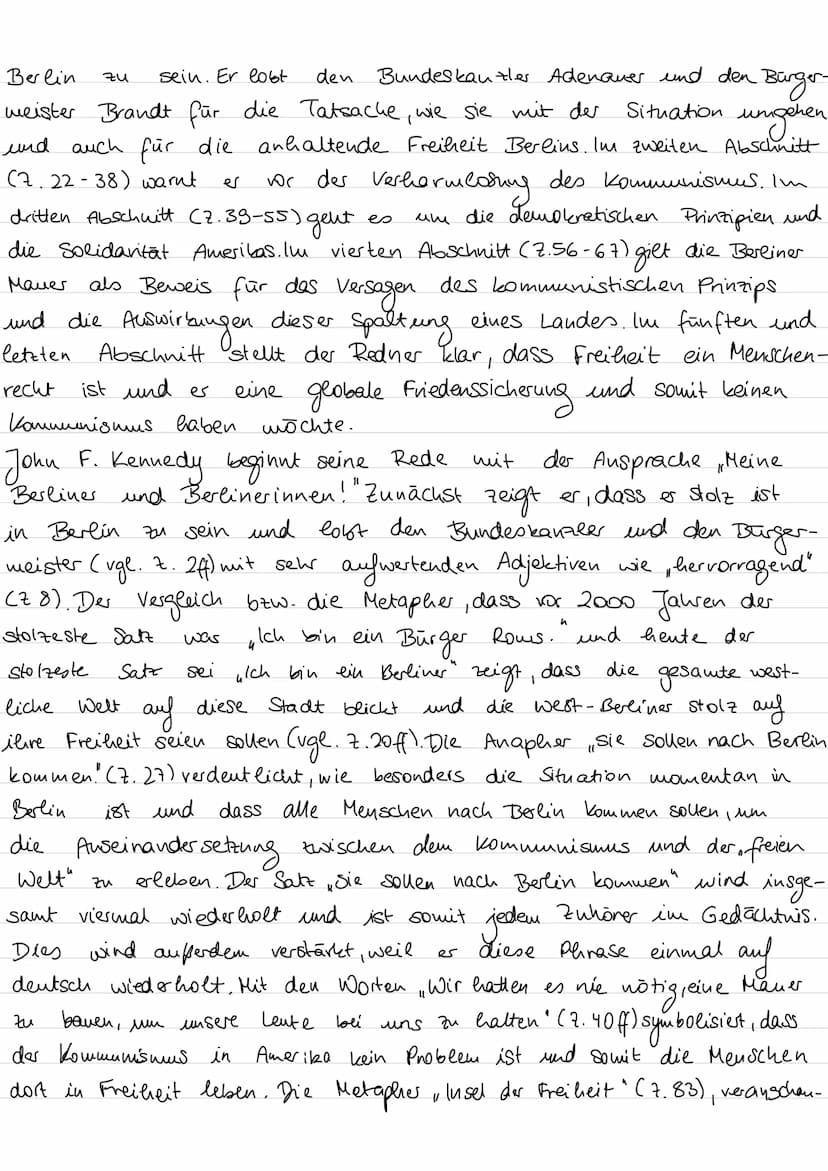 Berlin zu sein. Er lobt den Bundeskanzler Adenauer und den Bürger-
meister Brandt für die Tatsache, wie sie mit der Situation umgehen
und auch für die anhaltende Freiheit Berlins. Im zweiten Abschnitt
(Z. 22-38) warnt er vor der Verharmlosung des Kommunismus. Im
dritten Abschnitt (Z. 39-55) geht es um die demokratischen Prinzipien und
die Solidarität Amerikas. Im vierten Abschnitt (Z. 56-67) gilt die Berliner
Mauer als Beweis für das Versagen des kommunistischen Prinzips
und die Auswirkungen dieser Spaltung eines Landes. Im fünften und
letzten Abschnitt stellt der Redner klar, dass Freiheit ein Menschen-
recht ist und er eine globale Friedenssicherung und somit keinen
Kommunismus haben möchte.
John F. Kennedy beginnt seine Rede mit der Ansprache „Meine
Berliner und Berlinerinnen!" Zunächst zeigt er, dass er stolz ist
in Berlin zu sein und lobt den Bundeskanzler und den Bürger-
meister (vgl. Z. 2ff) mit sehr aufwertenden Adjektiven wie „hervorragend"
(Z 8). Der Vergleich bzw. die Metapher, dass vor 2000 Jahren der
stolzeste Satz war „Ich bin ein Bürger Roms." und heute der
stolzeste Satz sei „Ich bin ein Berliner" zeigt, dass die gesamte west-
liche Welt auf diese Stadt blickt und die West-Berliner stolz auf
ihre Freiheit seien sollen (vgl. Z. 20ff). Die Anapher „Sie sollen nach Berlin
kommen." (Z. 27) verdeutlicht, wie besonders die Situation momentan in
Berlin ist und dass alle Menschen nach Berlin kommen sollen, um
die Auseinandersetzung zwischen dem Kommunismus und der „freien
Welt" zu erleben. Der Satz „Sie sollen nach Berlin kommen" wird insge-
samt viermal wiederholt und ist somit jedem Zuhörer im Gedächtnis.
Dies wird außerdem verstärkt, weil er diese Phrase einmal auf
deutsch wiederholt. Mit den Worten „Wir hatten es nie nötig, eine Mauer
zu bauen, um unsere Leute bei uns zu halten" (Z. 40ff) symbolisiert, dass
der Kommunismus in Amerika kein Problem ist und somit die Menschen
dort in Freiheit leben. Die Metapher „Insel der Freiheit" (Z. 83), veranschau-